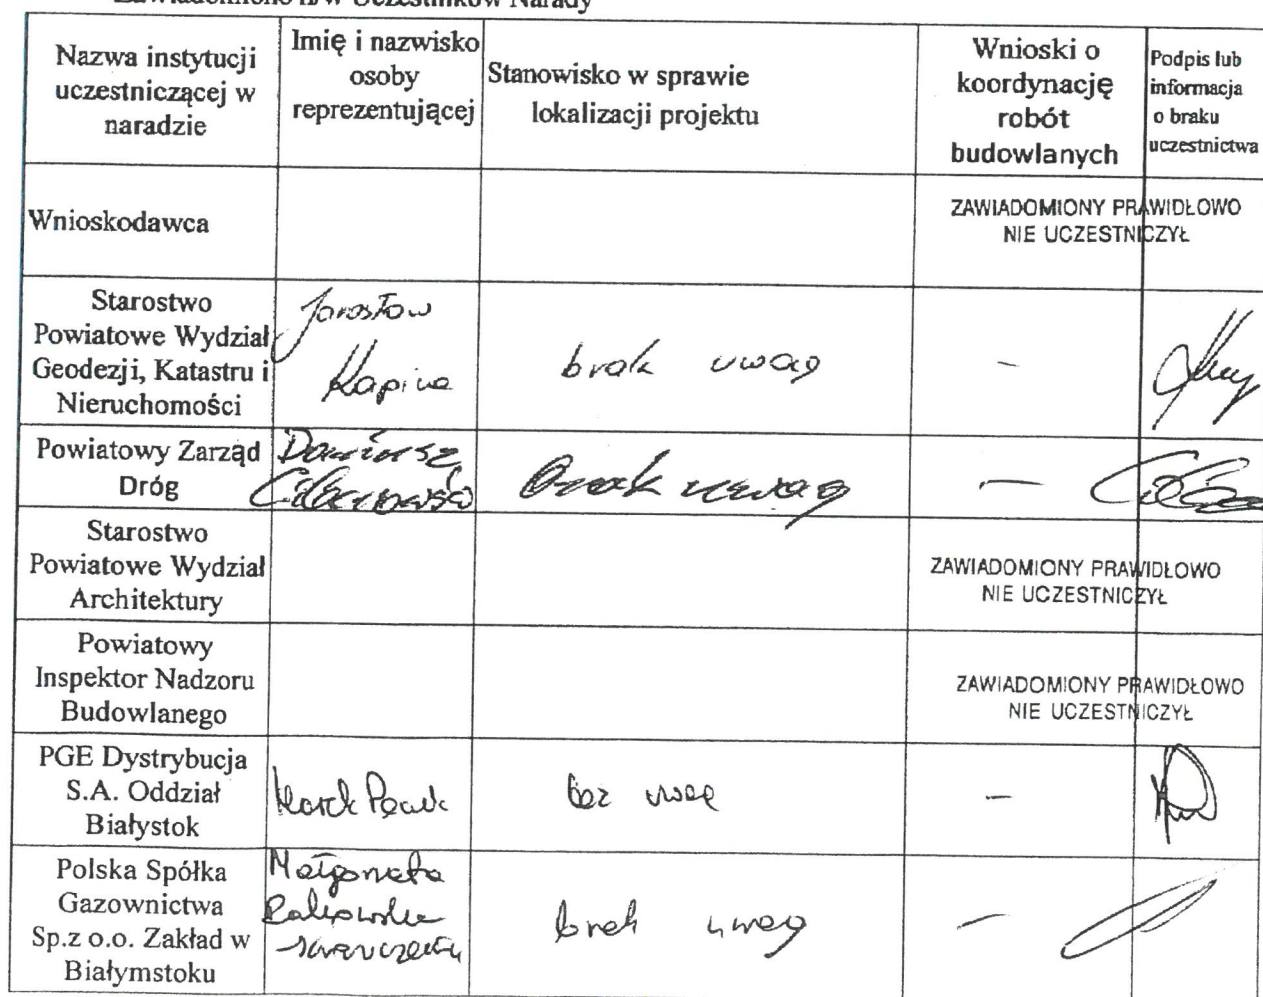 Zawiadomiono n/w Uczestników Narady
Nazwa instytucji
uczestniczącej w
naradzie
Imię i nazwisko
osoby
reprezentującej
Stanowisko w sprawie
lokalizacji projektu
Wnioski o
koordynację
robót
budowlanych
Podpis lub
informacja
o braku
uczestnictwa
Wnioskodawca
ZAWIADOMIONY PRAWIDŁOWO
NIE UCZESTNICZYŁ
Starostwo
Powiatowe Wydział
Geodezji, Katastru i
Nieruchomości
Jarosław
brak uwag
–
Powiatowy Zarząd
Dróg
Dariusz
brak uwag
–
Starostwo
Powiatowe Wydział
Architektury
ZAWIADOMIONY PRAWIDŁOWO
NIE UCZESTNICZYŁ
Powiatowy
Inspektor Nadzoru
Budowlanego
ZAWIADOMIONY PRAWIDŁOWO
NIE UCZESTNICZYŁ
PGE Dystrybucja
S.A. Oddział
Białystok
Marek
bez uwag
–
Polska Spółka
Gazownictwa
Sp.z o.o. Zakład w
Białymstoku
Małgorzata
brak uwag
–